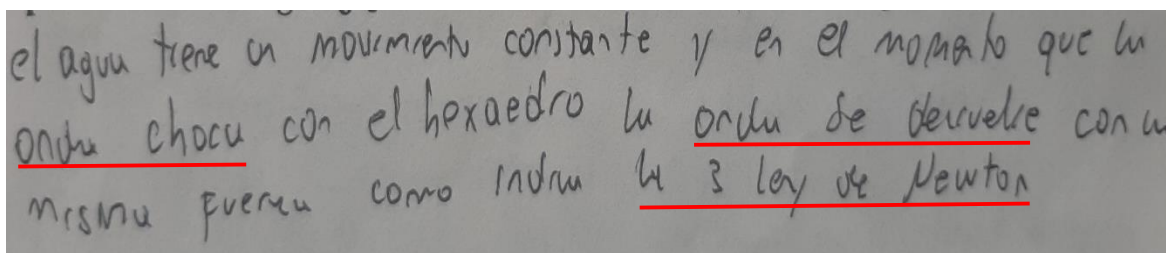 el agua tiene un movimiento constante y en el momento que la
onda choca con el hexaedro la onda se devuelve con la
misma fuerza como indica la 3 ley de Newton